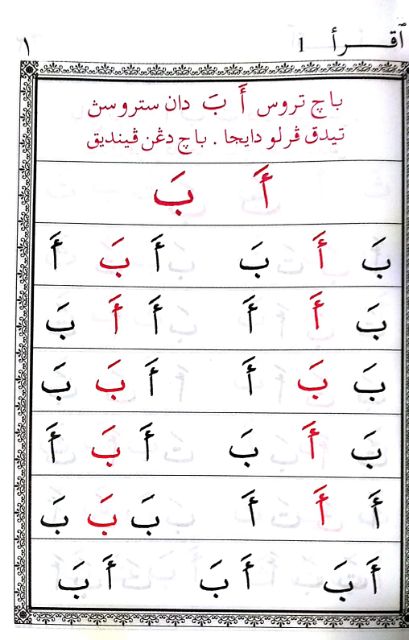 ٱقـرأ 1 ١
باچ تروس أَ بَ دان ستروسڽ
تيدق ڤرلو دايجا . باچ دڠن ڤينديق
أَ بَ
بَ أَ بَ أَ بَ أَ
بَ أَ أَ أَ أَ بَ
بَ بَ أَ أَ بَ بَ
بَ أَ بَ أَ بَ أَ
أَ أَ أَ بَ بَ بَ
أَ بَ أَ بَ أَ بَ